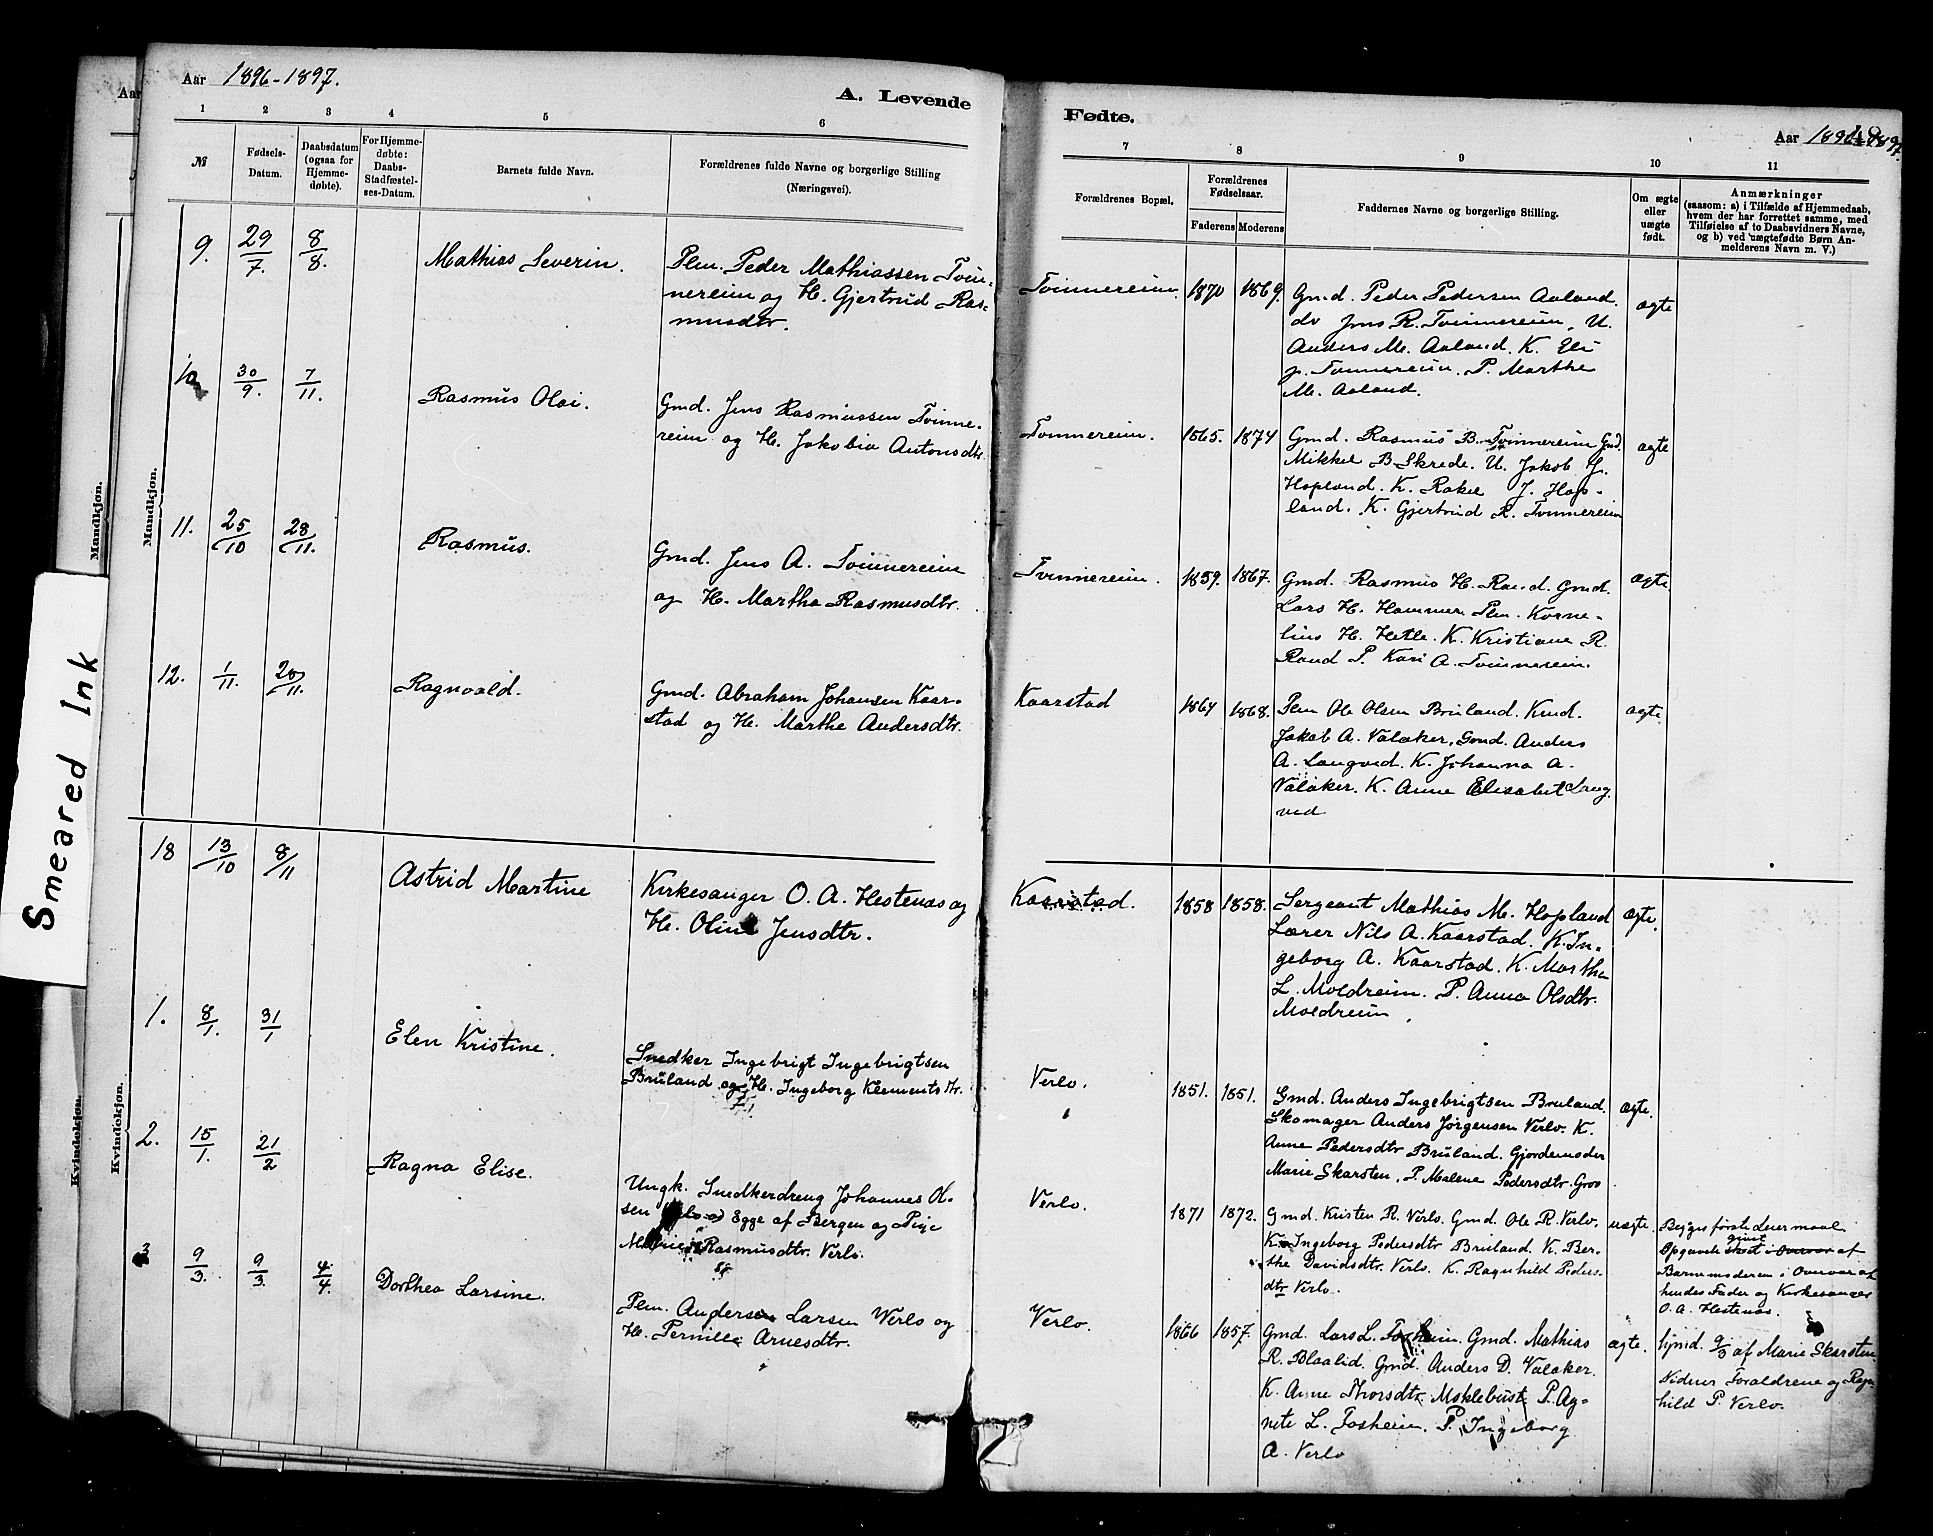 Smeared Ink
Aar
Aar 1896-1897.
A. Levende
1 2 3 4 5 6
№ Fødsels-Datum. Daabsdatum (ogsaa for Hjemmedøbte). For Hjemmedøbte: Daabs-Stadfæstelses-Datum. Barnets fulde Navn. Forældrenes fulde Navne og borgerlige Stilling (Næringsvei).
Mandkjøn.
Mandkjøn.
9. 29/7. 8/8. Mathias Severin. Plm. Peder Mathiassen Tvin-
nereim og H. Gjertrud Ras-
musdtr.
10 30/9. 7/11. Rasmus Olai. Gmd. Jens Rasmussen Tvinne-
reim og H. Jakobia Antonsdtr.
11. 25/10 28/11. Rasmus. Gmd. Jens A. Tvinnereim
og H. Martha Rasmusdtr.
12. 1/11. 28/11. Ragnvald. Gmd. Abraham Johansen Kaar-
stad og H. Marthe Andersdtr.
Kvindekjøn.
Kvindekjøn.
18 13/10 8/11 Astrid Martine Kirkesanger O. A. Hestenes og
H. Oline Jensdtr.
1. 8/1. 31/1 Elen Kristine. Snedker Ingebrigt Ingebrigtsen
Bruland og H. Ingeborg Klementsdtr.
2. 15/1. 21/2 Ragna Elise. Ungk. Snedkerdreng Johannes Ol-
sen Egge af Bergen og Pige
Marie Rasmusdtr. Verlo.
3 9/3. 9/3. 4/4. Dorthea Larsine. Plm. Andersen Larsen Verlo og
H. Pernille Arnesdtr.
Fødte.
Aar 1896-1897.
7 8 9 10 11
Forældrenes Bopæl. Forældrenes Fødselsaar. Faderens Moderens Faddernes Navne og borgerlige Stilling. Om ægte eller uægte født. Anmærkninger
(saasom: a) i Tilfælde af Hjemmedaab,
hvem der har forrettet samme, med
Tilføielse af to Daabsvidners Navne,
og b) ved uægtefødte Børn An-
melderens Navn m. V.)
Tvinnereim. 1870 1869. Gmd. Peder Pedersen Aaland. ægte
do Jens R. Tvinnereim, U.
Anders M. Aaland. K. Eli
J. Tvinnereim. P. Marthe
M. Aaland.
Tvinnereim. 1865. 1874 Gmd. Rasmus B. Tvinnereim Gmd. ægte
Mikkel B Skrede. U. Jakob J.
Hopland. K. Rakel J. Hop-
land. K. Gjertrud R. Tvinnereim
Tvinnereim. 1859. 1867. Gmd. Rasmus H. Rand. Gmd. ægte
Lars H. Hammer. Plm. Korne-
lius H. Hetle. K. Kristiane R.
Rand P. Kari A. Tvinnereim.
Kaarstad 1864 1868. Plm Ole Olsen Bruland. Kmd. ægte
Jakob A. Valaker, Gmd. Anders
A. Langved. K. Johanna A.
Valaker. K. Anne Elisabet Lang
ved
Kaarstad. 1858 1858. Sergeant Mathias M. Hopland ægte.
Lærer Nils A. Kaarstad. K. In-
geborg A. Kaarstad. K. Martha
L. Moldreim. P. Anna Olsdtr.
Moldreim
Verlo. 1851. 1851. Gmd. Anders Ingebrigtsen Bruland. ægte.
Skomager Anders Jørgensen Verlo. K.
Anne Pedersdtr Bruland. Gjordemoder
Marie Skarsten, P. Malene Pedersdtr. Groo
Verlo. 1871 1872. Gmd. Kristen R. Verlo. Gmd. Ole R. Verlo. uægte. Begges første Leiermaal
K. Ingeborg Pedersdtr Bruland. K. Ber- Opgavde givet af
the Davidsdtr. Verlo. K. Ragnhild Peders- Barnemoderen i Overvær af
dtr Verlo. hendes Fader og Kirkesanger
O. A. Hestenes.
Verlo. 1866 1857. Gmd. Lars L. Fosheim. Gmd. Mathias ægte. hjmd. 9/3 af Marie Skarsten
R. Blaalid. Gmd. Anders D. Valaker. Vidner Forældrene og Ragn-
K. Anne Thorsdtr Myklebust P. Ag- hild P. Verlo.
nete L. Fosheim. P. Ingeborg
A. Verlo